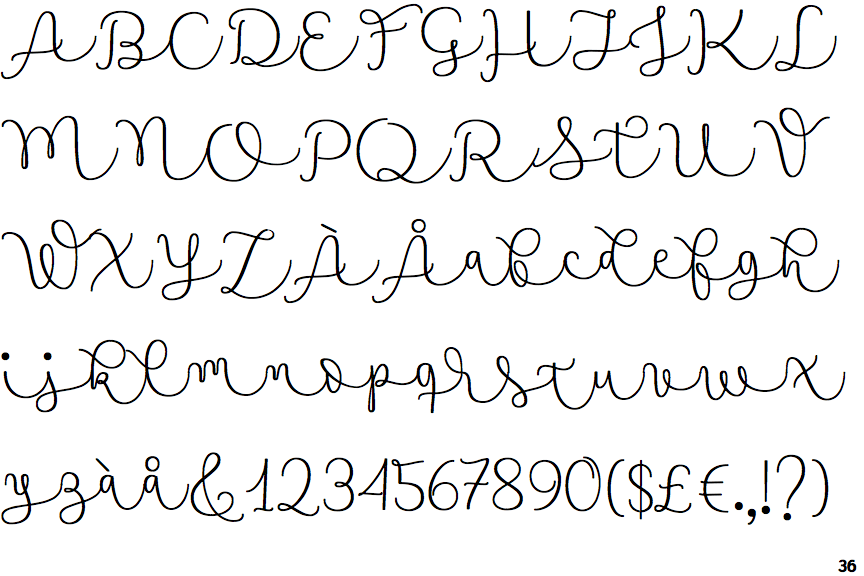 ABCDEFGHIJKL
MNOPQRSTUV
WXYZÀÅabcdefgh
ijklmnopqrstuvwx
yzàå&1234567890($£€.,!?)
36